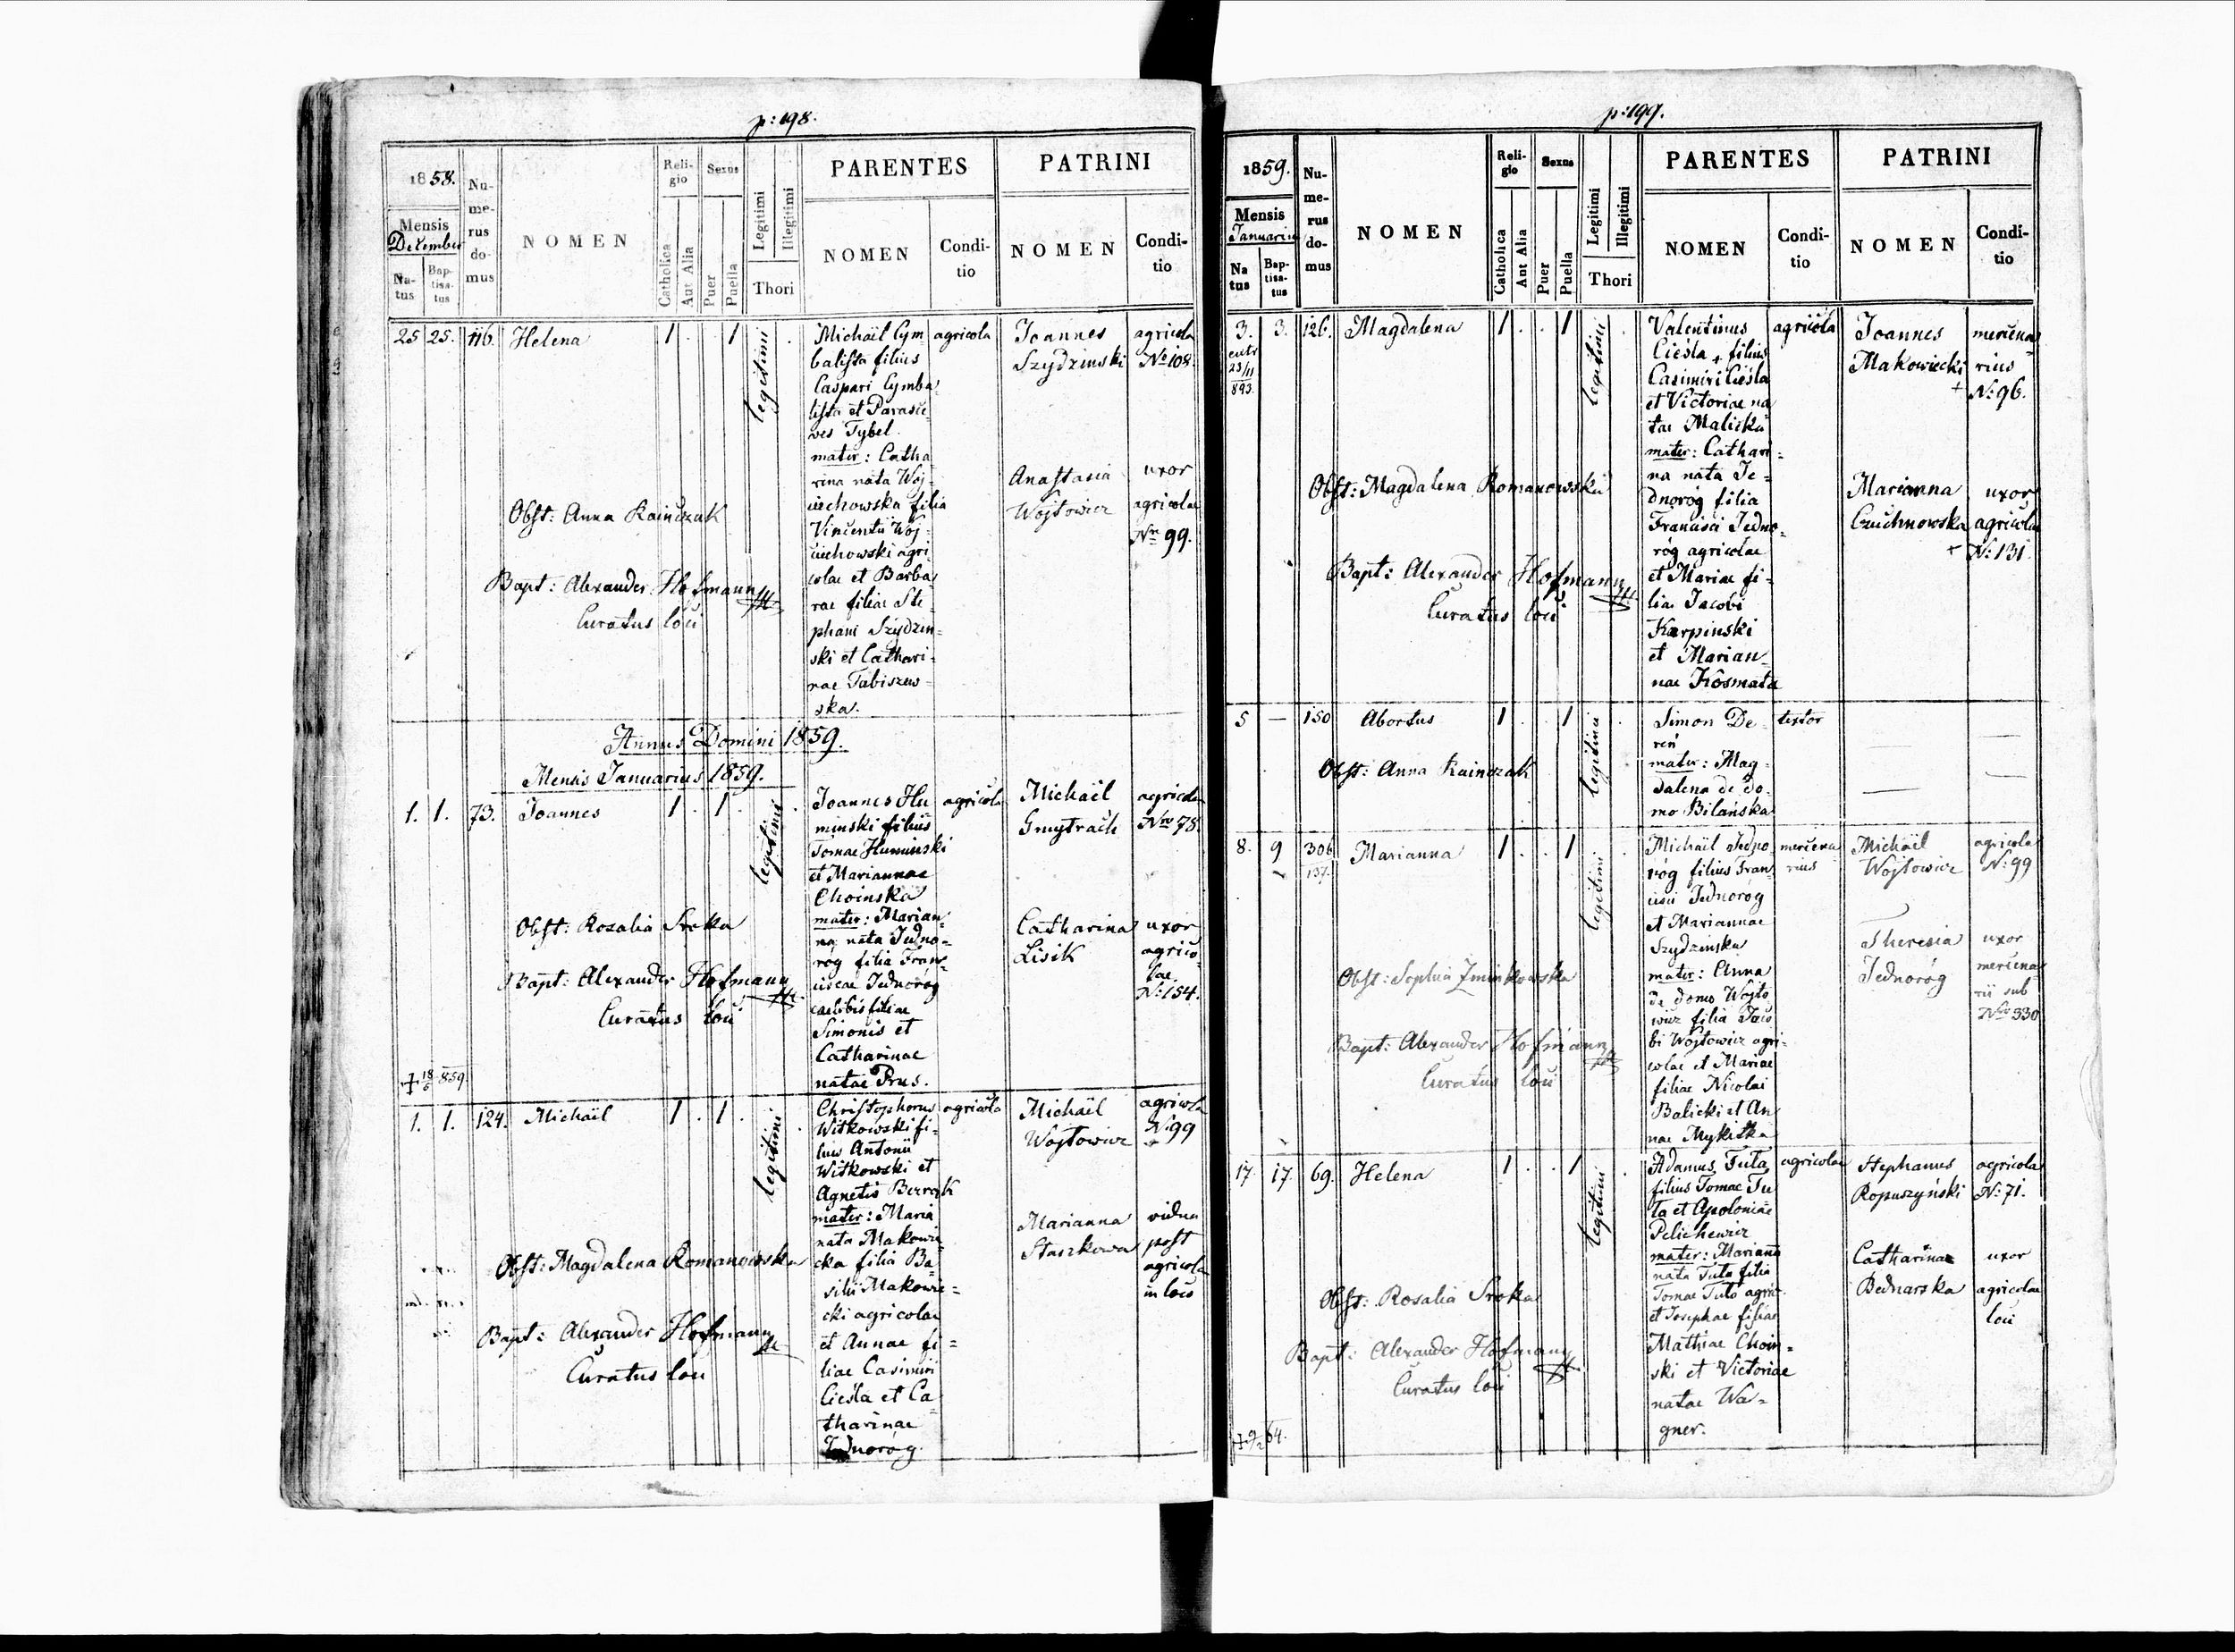 p: 198.
1858.
Mensis
December
Na-
tus
Bap-
tisa-
tus
Nu-
me-
rus
do-
mus
NOMEN
Reli-
gio
Catholica
Aut Alia
Sexus
Puer
Puella
Legitimi
Illegitimi
Thori
PARENTES
NOMEN
Condi-
tio
PATRINI
NOMEN
Condi-
tio
25 25. 116. Helena 1 . . 1 legitimi .
Michaël Cym
balista filius
Caspari Cymba
lista et Parasce
ves Tybel.
mater: Catha
rina nata Woj-
ciechowska filia
Vincentii Woj-
ciechowski agri
colae et Barba
rae filiae Ste
phani Szydzin=
ski et Cathari-
nae Tabiszew-
ska.
agricola
Joannes
Szydzinski
agricola
No 108.
Anastasia
Wojtowicz
uxor
agricolae
Nro 99.
Obst: Anna Kainczak
Bapt: Alexander Hofmann
Curatus loci
Annus Domini 1859.
Mensis Januarius 1859.
1. 1. 73. Joannes 1 . 1 . legitimi .
Joannes Hu
minski filius
Tomae Huminski
et Mariannae
Choinska
mater: Marian
na nata Jedno=
róg filia Fran=
ciscae Jednoróg
caelibis filiae
Simonis et
Catharinae
natae Prus.
agricola
Michaël
Gmytrach
agricola
Nro 78.
Catharina
Lisik
uxor
agrico
lae
N: 154.
Obst: Rosalia Sroka
Bapt: Alexander Hofmann
Curatus loci
† 18/6 859.
1. 1. 124. Michaël 1 . 1 . legitimi .
Christophorus
Witkowski fi-
lius Antonii
Witkowski et
Agnetis
mater: Maria
nata Makowi
cka filia Ba
silii Makowi=
cki agricolae
et Annae fi=
liae Casimiri
Cieśla et Ca
tharinae
Jednoróg.
agricola
Michaël
Wojtowicz
agricola
N: 99
Marianna
Staszkowa
vidua
post
agricola
in loco
Obst: Magdalena Romanowska
Bapt: Alexander Hofmann
Curatus loci
p: 199.
1859.
Mensis
Januarius
Na
tus
Bap-
tisa-
tus
Nu-
me-
rus
do-
mus
NOMEN
Reli-
gio
Catholica
Aut Alia
Sexus
Puer
Puella
Legitimi
Illegitimi
Thori
PARENTES
NOMEN
Condi-
tio
PATRINI
NOMEN
Condi-
tio
3. 3. 126. Magdalena 1 . . 1 legitimi .
extr
23/11
893.
Valentinus
Cieśla + filius
Casimiri Cieśla
et Victoriae na
tae Malicka
mater: Cathari=
na nata Je-
dnoróg filia
Francisci Jedno-
róg agricolae
et Mariae fi-
liae Jacobi
Karpinski
et Marian-
nae Kôsmata
agricola
Joannes
Makowiecki
+
mercena
rius
N: 96.
Marianna
Czuchnowska
+
uxor
agricolae
N: 131.
Obst: Magdalena Romanowska
Bapt: Alexander Hofmann
Curatus loci
5 — 150 Abortus 1 . . 1 legitimi .
Simon De-
reń
mater: Mag-
dalena de do-
mo Bilańska
textor
Obst: Anna Kainczak
8. 9 306 Marianna 1 . . 1 legitimi .
137.
Michaël Jedno
róg filius Fran
cisci Jednoróg
et Mariannae
Szydzinska
mater: Anna
de domo Wojto
wicz filia Jaco
bi Wojtowicz agri-
colae et Mariae
filiae Nicolai
Balicki et An
nae Mykitka
mercena
rius
Michaël
Wojtowicz
agricola
N: 99
Theresia
Jednoróg
uxor
mercena
rii sub
Nro 330
Obst: Sophia Zminkowska
Bapt: Alexander Hofmann
Curatus loci
17. 17. 69. Helena 1 . . 1 legitimi .
Adamus Tuta
filius Tomae Tu
ta et Apoloniae
Pelichewicz
mater: Marianna
nata Tuta filia
Tomae Tuto agric
et Josephae filiae
Mathiae Choin=
ski et Victoriae
natae Wa=
gner.
agricola
Stephanus
Ropuszyński
agricola
N: 71.
Catharinae
Bednarska
uxor
agricolae
loci
Obst: Rosalia Sroka
Bapt: Alexander Hofmann
Curatus loci
† 9/2 64.